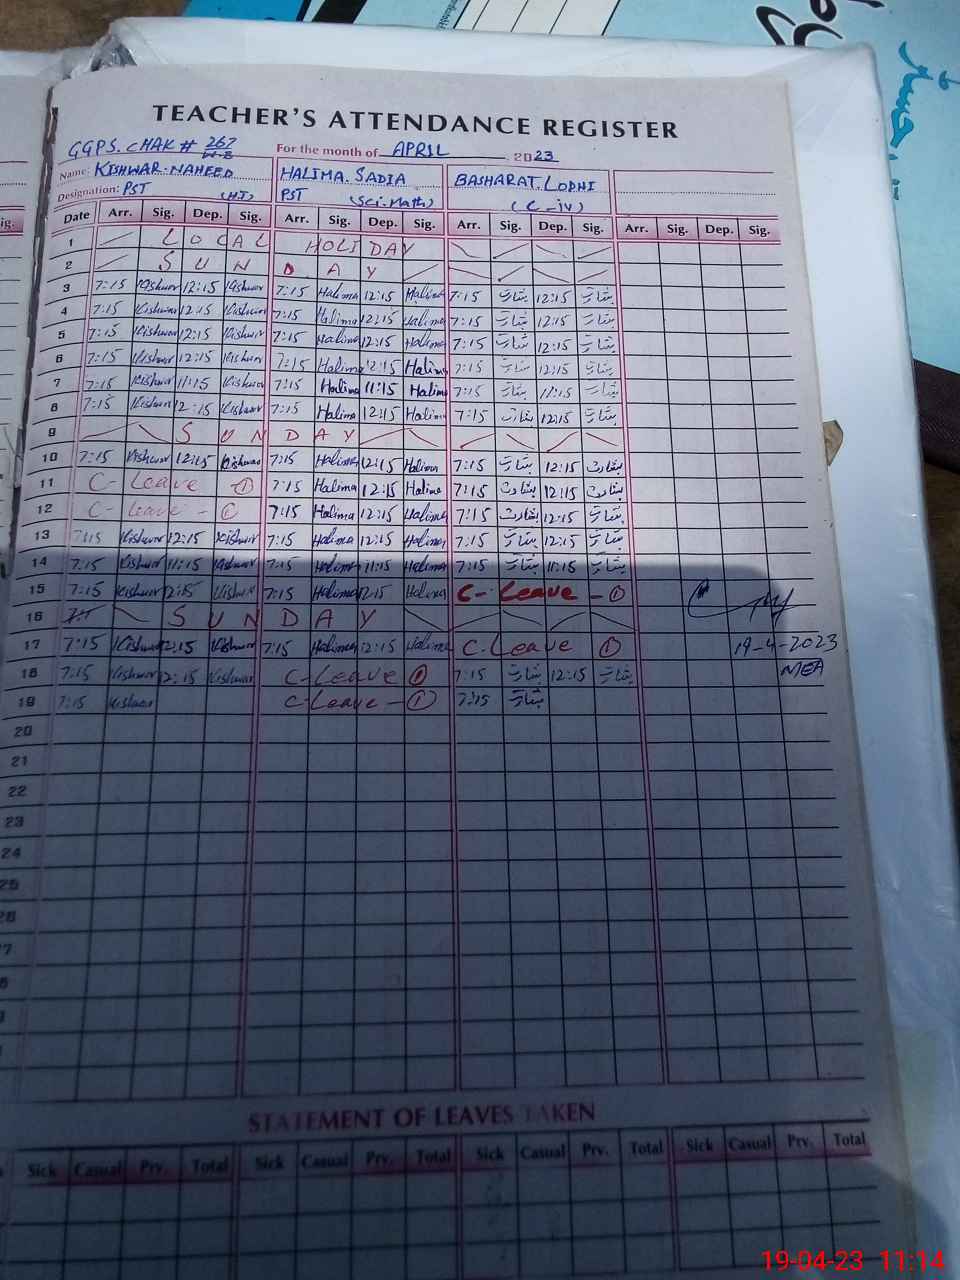 TEACHER'S ATTENDANCE REGISTER
GGPS. CHAK # 267 W.B
For the month of APRIL 2023
Name: KISHWAR NAHEED HALIMA. SADIA BASHARAT. LODHI
Designation: PST (H.T) PST (Sci. Math) (C-iv)
Date Arr. Sig. Dep. Sig. Arr. Sig. Dep. Sig. Arr. Sig. Dep. Sig. Arr. Sig. Dep. Sig.
1 LOCAL HOLIDAY
2 SUNDAY
3 7:15 Kishwar 12:15 Kishwar 7:15 Halima 12:15 Halima 7:15 بشارت 12:15 بشارت
4 7:15 Kishwar 12:15 Kishwar 7:15 Halima 12:15 Halima 7:15 بشارت 12:15 بشارت
5 7:15 Kishwar 12:15 Kishwar 7:15 Halima 12:15 Halima 7:15 بشارت 12:15 بشارت
6 7:15 Kishwar 12:15 Kishwar 7:15 Halima 12:15 Halima 7:15 بشارت 12:15 بشارت
7 7:15 Kishwar 11:15 Kishwar 7:15 Halima 11:15 Halima 7:15 بشارت 11:15 بشارت
8 7:15 Kishwar 12:15 Kishwar 7:15 Halima 12:15 Halima 7:15 بشارت 12:15 بشارت
9 SUNDAY
10 7:15 Kishwar 12:15 Kishwar 7:15 Halima 12:15 Halima 7:15 بشارت 12:15 بشارت
11 C-Leave ① 7:15 Halima 12:15 Halima 7:15 بشارت 12:15 بشارت
12 C-Leave - ① 7:15 Halima 12:15 Halima 7:15 بشارت 12:15 بشارت
13 7:15 Kishwar 12:15 Kishwar 7:15 Halima 12:15 Halima 7:15 بشارت 12:15 بشارت
14 7:15 Kishwar 11:15 Kishwar 7:15 Halima 11:15 Halima 7:15 بشارت 11:15 بشارت
15 7:15 Kishwar 12:15 Kishwar 7:15 Halima 12:15 Halima C-Leave - ①
16 SUNDAY
17 7:15 Kishwar 12:15 Kishwar 7:15 Halima 12:15 Halima C.Leave ① 19-4-2023
18 7:15 Kishwar 12:15 Kishwar C-Leave ① 7:15 بشارت 12:15 بشارت MEA
19 7:15 Kishwar C-Leave - ① 7:15 بشارت
20
21
22
23
24
25
26
STATEMENT OF LEAVES TAKEN
Sick Casual Prv. Total Sick Casual Prv. Total Sick Casual Prv. Total Sick Casual Prv. Total
19-04-23 11:14